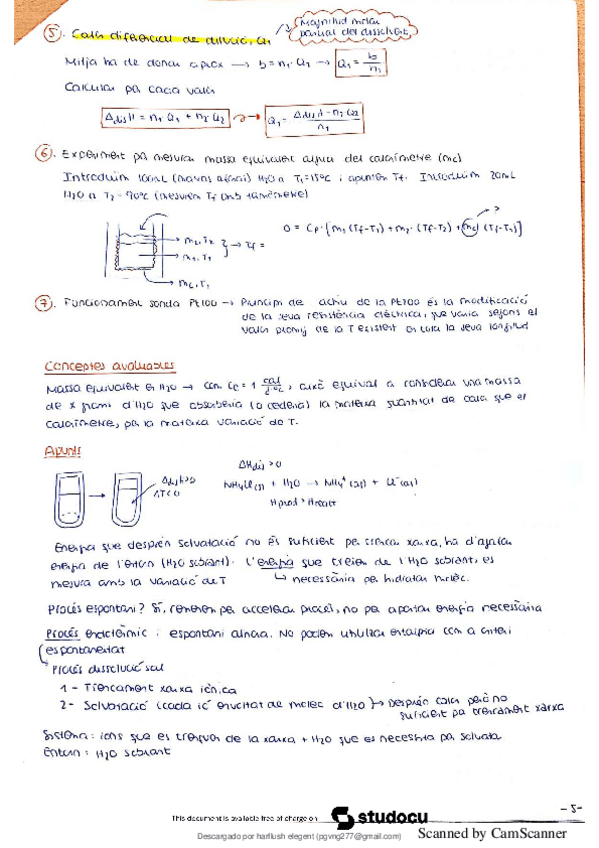 ⑤. Calor diferencial de dilució, Q₁
Magnitud molar
parcial del dissolvent
Mitja ha de donar aprox → b = n₁ · Q₁ → Q₁ = b/n₁
Calcular per cada valor
ΔdisH = n₁ Q₁ + n₂ Q₂ → Q₁ = (ΔdisH - n₂Q₂)/n₁
⑥. Experiment per mesurar massa equivalent aigua del calorímetre (mc)
Introduïm 100mL H₂O a T₁=15ºC i apuntem Tf. Introduïm 20mL
H₂O a T₂ = 90ºC (mesurem Tf amb termòmetre)
m₂, T₂
m₁, T₁
} → Tf =
mc, T₁
0 = Cp · [m₁ (Tf-T₁) + m₂ · (Tf-T₂) + mc (Tf-T₁)]
⑦. Funcionament sonda Pt100 → Principi de actiu de la Pt100 és la modificació
de la seva resistència elèctrica, que varia segons el
valor promig de la T existent en tota la seva longitud
Conceptes avaluables
Massa equivalent en H₂O → Com Ce = 1 cal/g·ºC, això equival a considerar una massa
de x grams d'H₂O que absorbeix (o cedeix) la mateixa quantitat de calor que el
calorímetre, per la mateixa variació de T.
Apunts
ΔdisH>0
ΔT<0
ΔHdis > 0
NH₄Cl(s) + H₂O → NH₄⁺(aq) + Cl⁻(aq)
Hprod > Hreact
Energia que desprèn solvatació no és suficient per trencar xarxa, ha d'agafar
energia de l'entorn (H₂O sobrant). L'energia que treiem de l'H₂O sobrant, es
mesura amb la variació de T
↳ necessària per hidratar molèc.
Procés espontani? Sí, remenem per accelerar procés, no per aportar energia necessària
Procés endotèrmic i espontani alhora. No podem utilitzar entalpia com a criteri
espontaneïtat
Procés dissolució sal
1 - Trencament xarxa iònica
2- Solvatació (cada ió envoltat de molèc d'H₂O) → Desprèn calor però no
suficient per trencament xarxa
Sistema: ions que es trenquen de la xarxa + H₂O que es necessita per solvatar
Entorn: H₂O sobrant
- 5 -
This document is available free of charge on
studocu
Descargado por harflush elegent (pgvng277@gmail.com)
Scanned by CamScanner